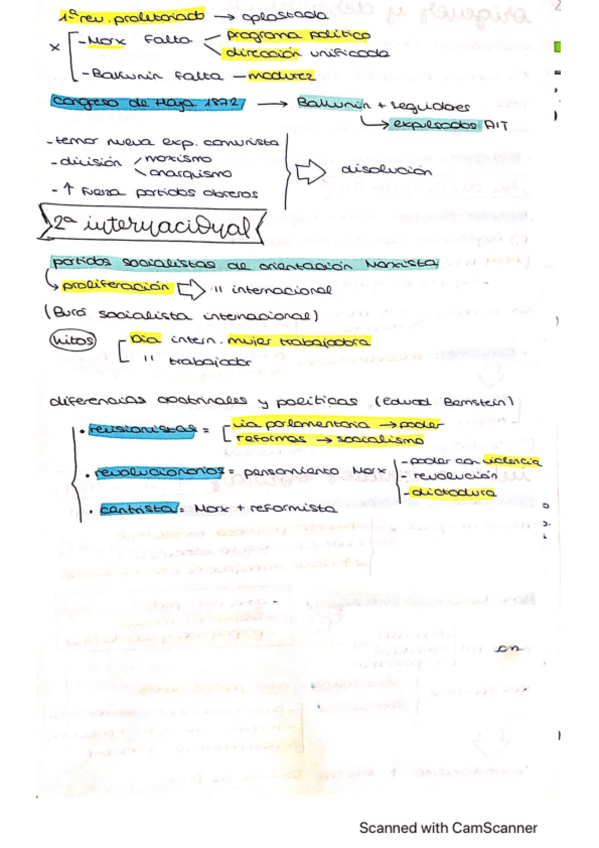 1ª rev. proletariado → aplastada
x - Marx falta programa político
dirección unificada
- Bakunin falta - madurez
Congreso de Haya 1872 → Bakunin + seguidores
→ expulsados AIT
- temor nueva exp. comunista
- división marxismo
anarquismo
- ↑ fuerza partidos obreros
⇒ disolución
2ª internacional
partidos socialistas de orientación Marxista
→ proliferación ⇒ II internacional
(Buró socialista internacional)
hitos Día intern. mujer trabajadora
" trabajador
diferencias doctrinales y políticas (Eduard Bernstein)
• revisionistas = vía parlamentaria → poder
reformas → socialismo
• revolucionarios = pensamiento Marx - poder con violencia
- revolución
- dictadura
• centrista = Marx + reformista
en
Scanned with CamScanner